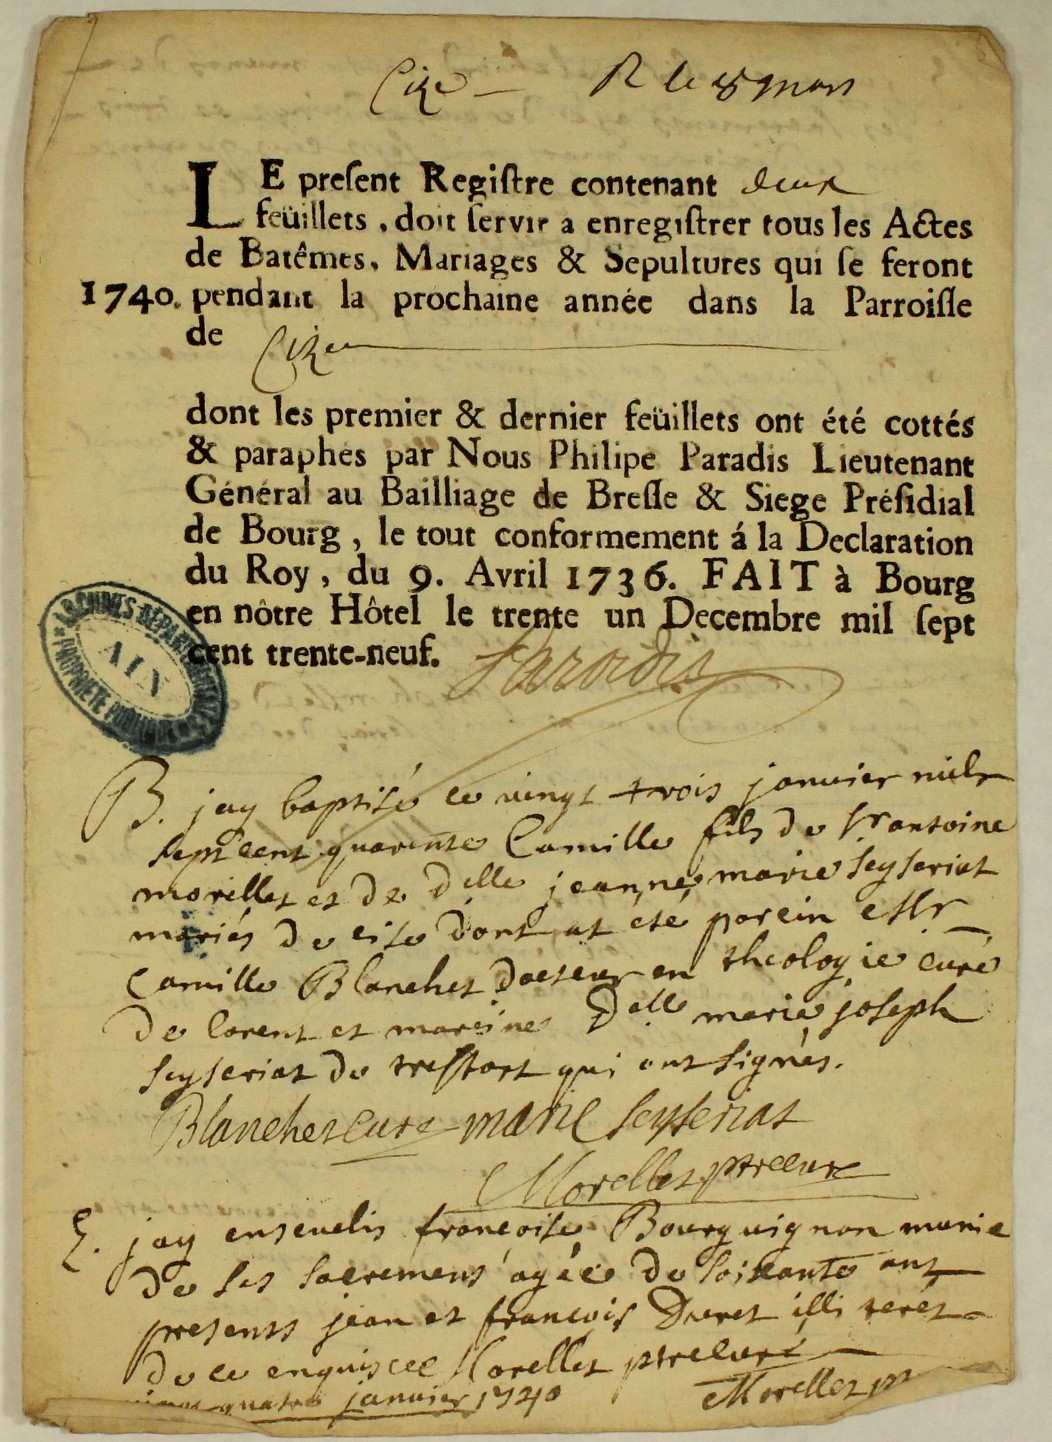 Cize — R le 8 mars
LE preſent Regiſtre contenant deux
feüillets, doit ſervir a enregiſtrer tous les Actes
de Batêmes, Mariages & Sepultures qui ſe feront
1740. pendant la prochaine année dans la Parroiſſe
de Cize
dont les premier & dernier feüillets ont été cottés
& paraphés par Nous Philipe Paradis Lieutenant
Général au Bailliage de Breſſe & Siege Préſidial
de Bourg, le tout conformement á la Declaration
du Roy, du 9. Avril 1736. FAIT à Bourg
en nôtre Hôtel le trente un Decembre mil ſept
cent trente-neuf. Paradis
ARCHIVES DÉPARTEMENTALES
AIN
PROPRIÉTÉ PUBLIQUE
B. jay baptisé ce vingt trois janvier mil
sept cent quarente Camille fils de Sr antoine
morellet et de Delle jeanne marie seyseriat
mariés de cise dont at été parein Mr
Camille Blanchet docteur en theologie curé
de Corent et mareine Delle marie joseph
seyseriat de treffort qui ont signés.
Blanchet curé marie seyseriat
Morellet ptre curé
E. jay ensevelis françoise Bourguignon munie
de ses sacremens agée de soixante ans
presents jean et françois Duret illi terés
de ce enquis Morellet ptre curé
quatre janvier 1740 Morellet ptr